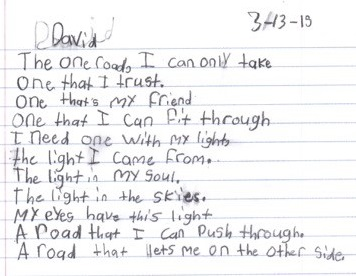 David
3-13-19
The one road, I can only take
One that I trust.
One that's my friend
One that I can fit through
I need one with my lights
the light I came from.
The light in my soul.
The light in the skies.
My eyes have this light
A road that I can push through.
A road that lets me on the other side.